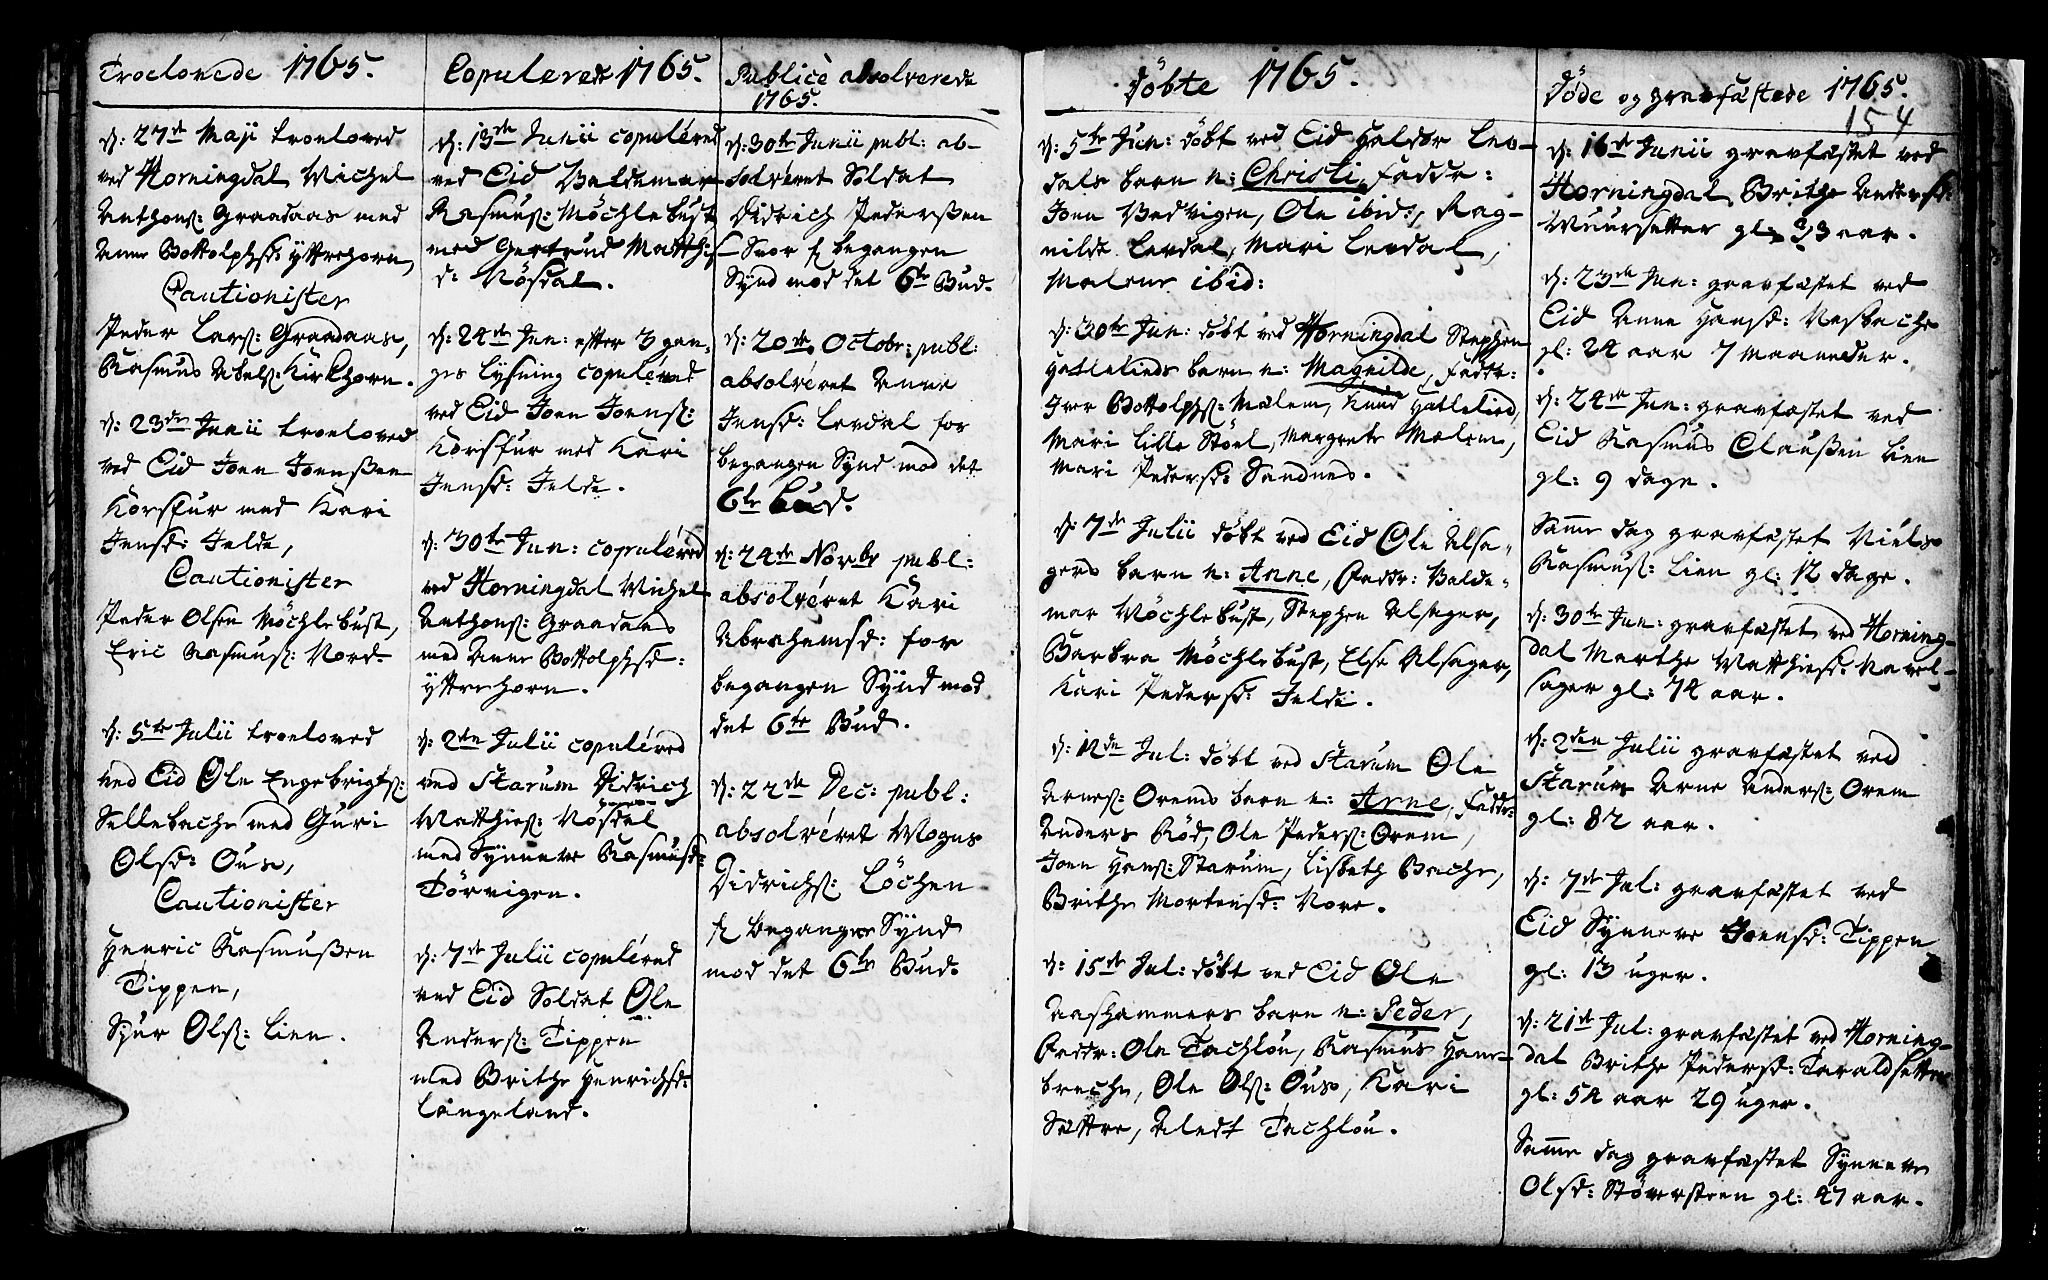 Troelovede 1765.
d: 27de Maji troeloved
ved Horningdal Michel
Anthons: Graadaas med
Anne Bottolphsd: Ytrehorn,
Cautionister
Peder Lars: Graadaas,
Rasmus Abels: Kirkhorn.
d: 23de Junii troeloved
ved Eid Joen Joenßen
Korsfur med Kari
Jensd: Jelde,
Cautionister
Peder Olsen Möchlebust,
Eric Rasmus: Nord-
d: 5te Julii troeloved
ved Eid Ole Engebrigts:
Sellebache med Guri
Olsd: Ous,
Cautionister
Henric Rasmußen
Tippen,
Siur Ols: Lien.
Copulerede 1765.
d: 13de Junii copuléred
ved Eid Baldemar
Rasmus: Möchlebust
med Gertrud Matthis-
d: Nösdal.
d: 24de Jun: efter 3 gan-
ges Lysning copuléred
ved Eid Joen Joens:
Korsfur med Kari
Jensd: Jelde.
d: 30te Jun: copuléred
ved Horningdal Michel
Anthons: Graadaas
med Anne Bottolphsd:
Ytrehorn.
d: 2den Julii copuléred
ved Starum Didrich
Matthies: Nösdal
med Synneve Rasmusd:
Törvigen.
d: 7de Julii copuléred
ved Eid Soldat Ole
Anders: Tippen
med Brithe Henrichsd:
Langeland.
Publicè absolverede
1765.
d: 30te Junii publ: ab-
solvéret Soldat
Didrich Pederßen
Svor f begangen
Synd mod det 6te Bud.
d: 20de Octobr: publ:
absolvéret Anne
Jensd: Levdal for
begangen Synd mod det
6te Bud.
d: 24de Novbr publ:
absolvéret Kari
Abrahamsd: for
begangen Synd mod
det 6te Bud.
d: 22de Dec: publ:
absolvéret Mogns
Didrichs: Löchen
f begangen Synd
mod det 6te Bud.
Döbte 1765.
d: 5te Jun: döbt ved Eid Haldor Lev-
dals barn n: Christi, Faddr:
Joen Bedvigen, Ole ibid:, Rag-
nilde Levdal, Mari Levdal,
Malene ibid:
d: 30te Jun: döbt ved Horningdal Stephen
Hatlelieds barn n: Magnilde, Faddr:
Iver Bottolphs: Mælem, Knud Hatlelied,
Mari Lille Stöel, Margrete Mælem,
Mari Pedersd: Sandnes.
d: 7de Julii döbt ved Eid Ole Alsa-
gers barn n: Anne, Faddr: Balde-
mar Möchlebust, Stephen Alsager,
Barbra Möchlebust, Else Alsager,
Kari Pedersd: Jelde.
d: 12de Jul: döbt ved Starum Ole
Arnes: Orems barn n: Arne, Faddr:
Anders Röd, Ole Peders: Orem,
Joen Hans: Starum, Lisbeth Bache,
Brithe Mortensd: Nore.
d: 15de Jul: döbt ved Eid Ole
Aashammers barn n: Peder,
Faddr: Ole Tachlou, Rasmus Hans-
breche, Ole Ols: Ous, Kari
Sættre, Aledt Tachlou.
Döde og gravfæstede 1765.
154
d: 16de Junii gravfæstet ved
Horningdal Brithe Andersd:
Muursetter gl: 33 aar.
d: 23de Jun: gravfæstet ved
Eid Anne Hansd: Nesbache
gl: 24 aar 7 Maaneder.
d: 24de Jun: gravfæstet ved
Eid Rasmus Claußen Lien
gl: 9 dage.
Samme dag gravfæstet Niels
Rasmus: Lien gl: 12 dage.
d: 30te Jun: gravfæstet ved Horning-
dal Marthe Matthiesd: Navel-
sager gl: 74 aar.
d: 2den Julii gravfæstet ved
Starum Arne Anders: Orem
gl: 82 aar.
d: 7de Jul: gravfæstet ved
Eid Synneve Joensd: Tippen
gl: 13 uger.
d: 21de Jul: gravfæstet ved Horning-
dal Brithe Pedersd: Taraldsetter
gl: 52 aar 29 uger.
Samme dag gravfæstet Synneve
Olsd: Störesteen gl: 47 aar.